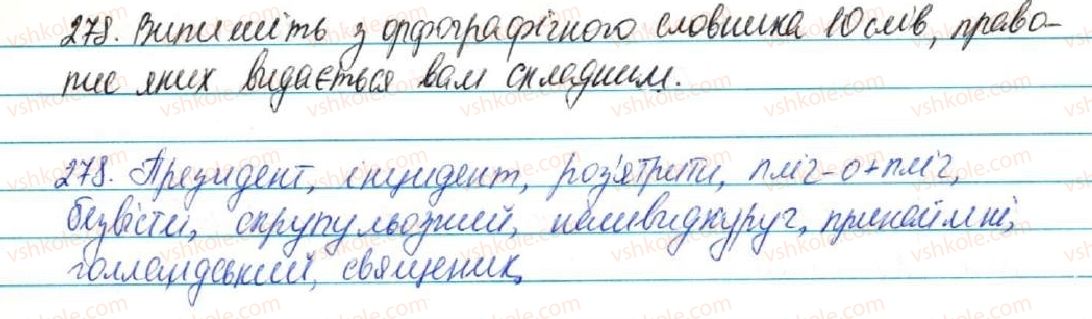 278. Випишіть з орфографічного словника 10 слів, право-
пис яких видається вам складним.
278. Президент, інцидент, роз'ятрити, пліг-о-пліг,
безвісти, скрупульозний, нашвидкуруч, принаймні,
голландський, священик.